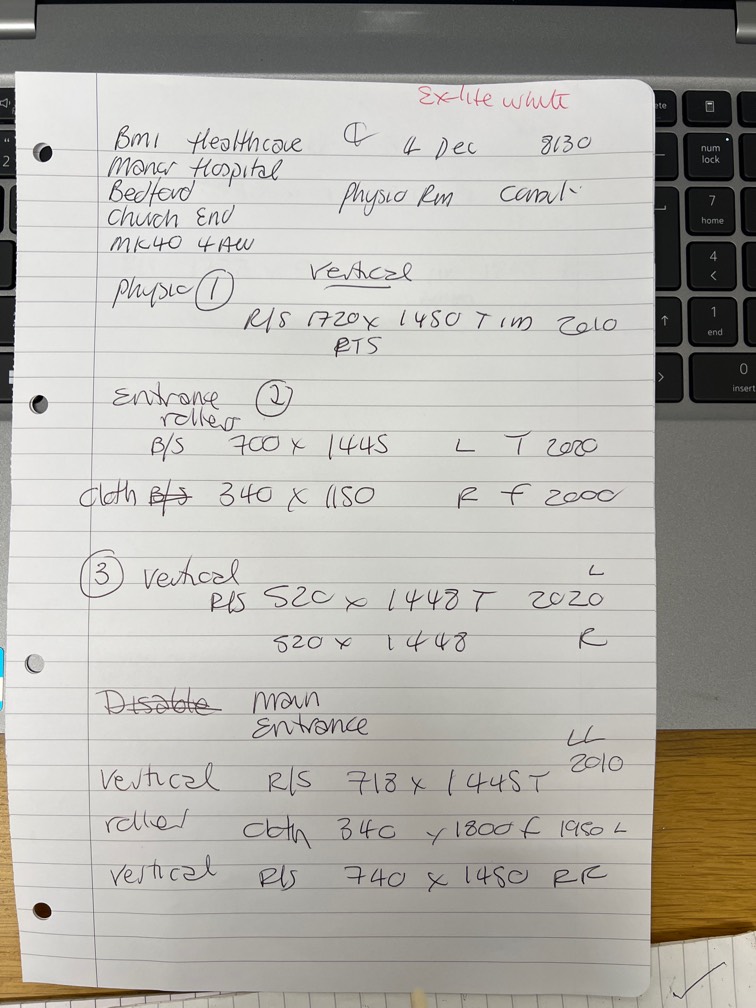 Ex-lite white
BMI Healthcare 4 Dec 8130
Manor Hospital
Bedford Physio Rm
Church End
MK40 4AW
Vertical
Physio 1
R/S 1720 x 1450 T 1M 2010
RTS
Entrance 2
roller
B/S 700 x 1445 L T 2020
Cloth B/S 340 x 1150 R F 2000
3 Vertical L
R/S 520 x 1448 T 2020
520 x 1448 R
Disable Main
Entrance
LL
2010
Vertical R/S 718 x 1445 T
roller Cloth 340 x 1800 F 1950 L
Vertical R/S 740 x 1450 RR
ete
num
lock
7
home
4
1
end
0
insert
2